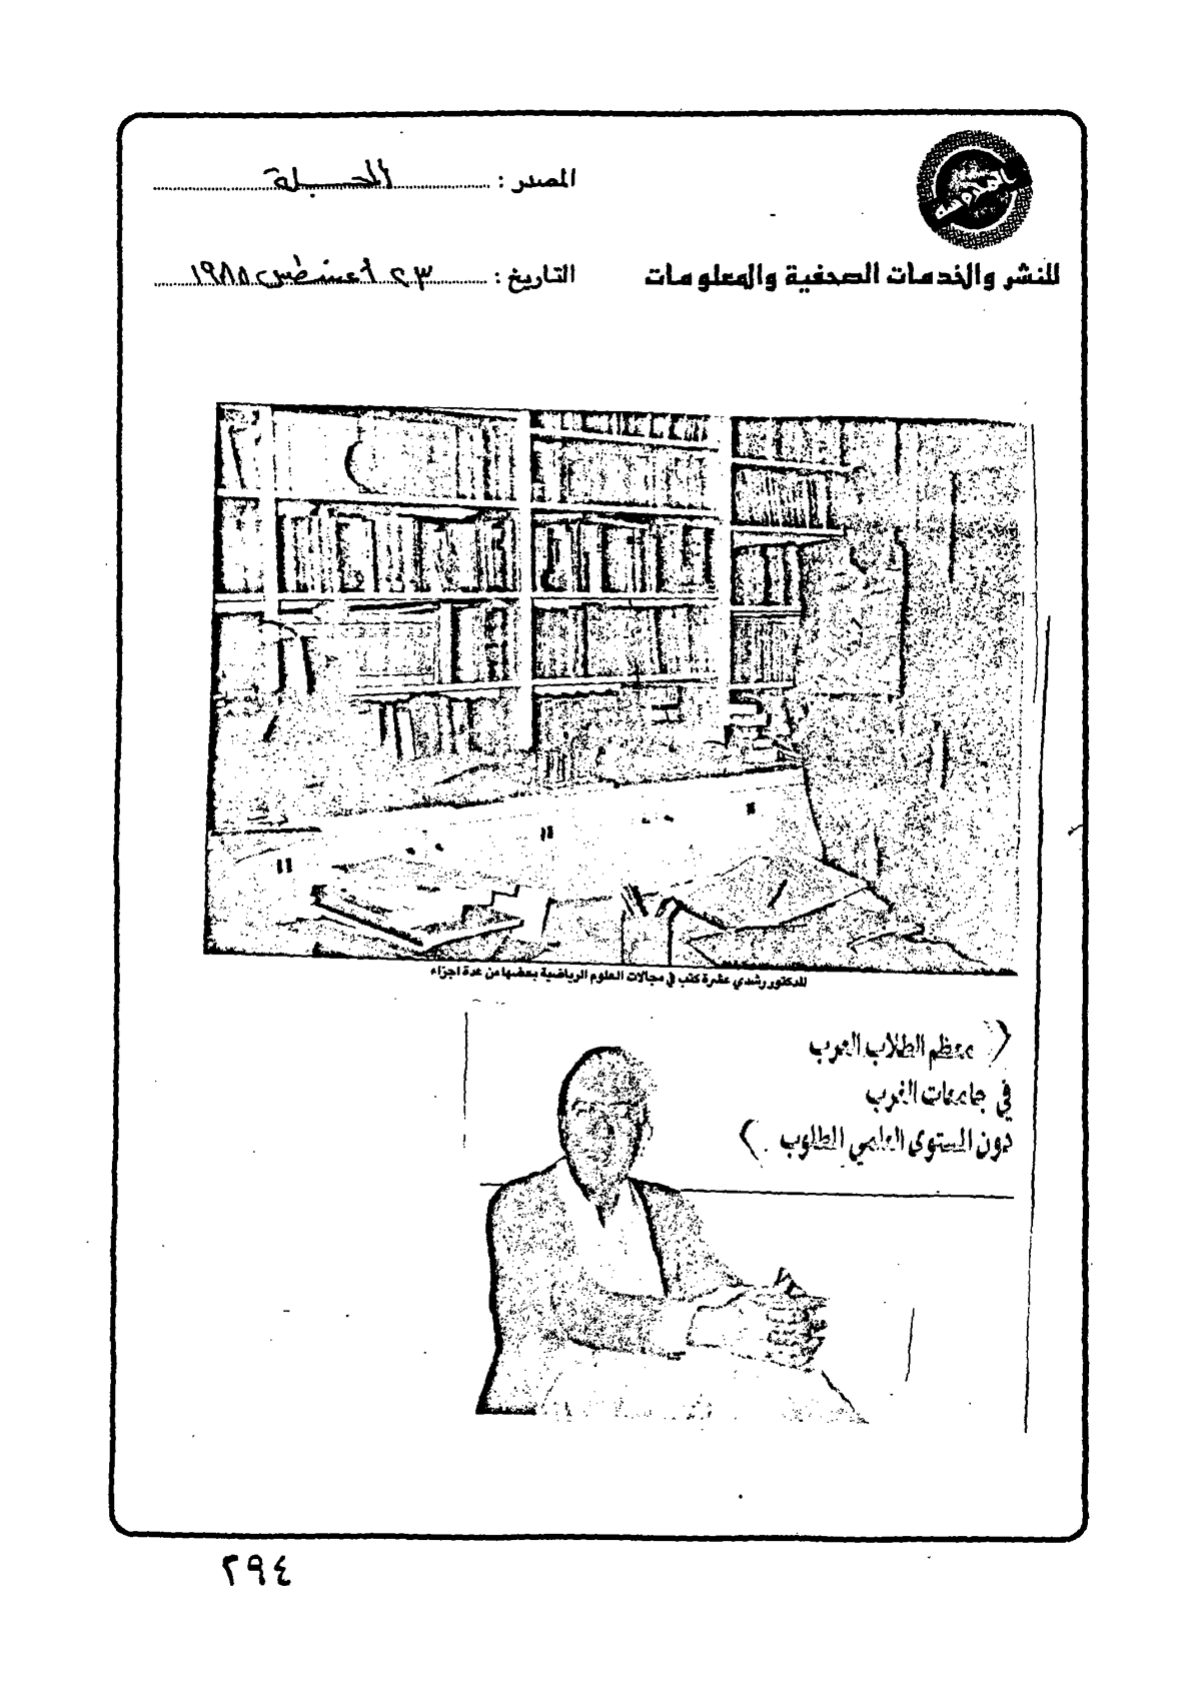 المصدر : المجلة
للنشر والخدمات الصحفية والمعلومات
التاريخ : ٢٣ أغسطس ١٩٨٨
للدكتور رشدي عشرة كتب في مجالات العلوم الرياضية بعضها من عدة اجزاء
معظم الطلاب العرب
في جامعات الغرب
دون المستوى العلمي المطلوب
٢٩٤